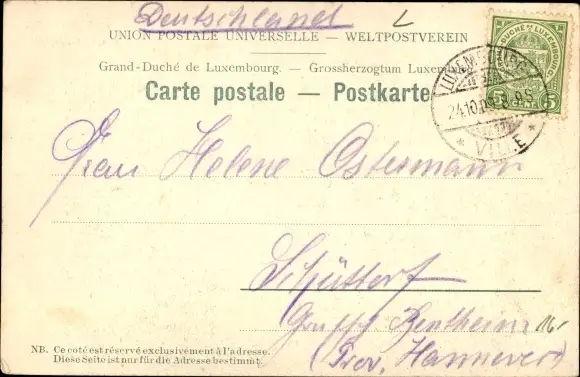 Deutschland
UNION POSTALE UNIVERSELLE — WELTPOSTVEREIN
Grand-Duché de Luxembourg. — Grossherzogtum Luxem
Carte postale — Postkarte
G. DUCHÉ DE LUXEMBOURG
5 5
LUXEMBOURG
24.10.0
VILLE
Frau Helene Ostermann
Schüttorf
Bentheim
(Prov. Hannover)
16-
NB. Ce coté est réservé exclusivement à l'adresse.
Diese Seite ist nur für die Adresse bestimmt.